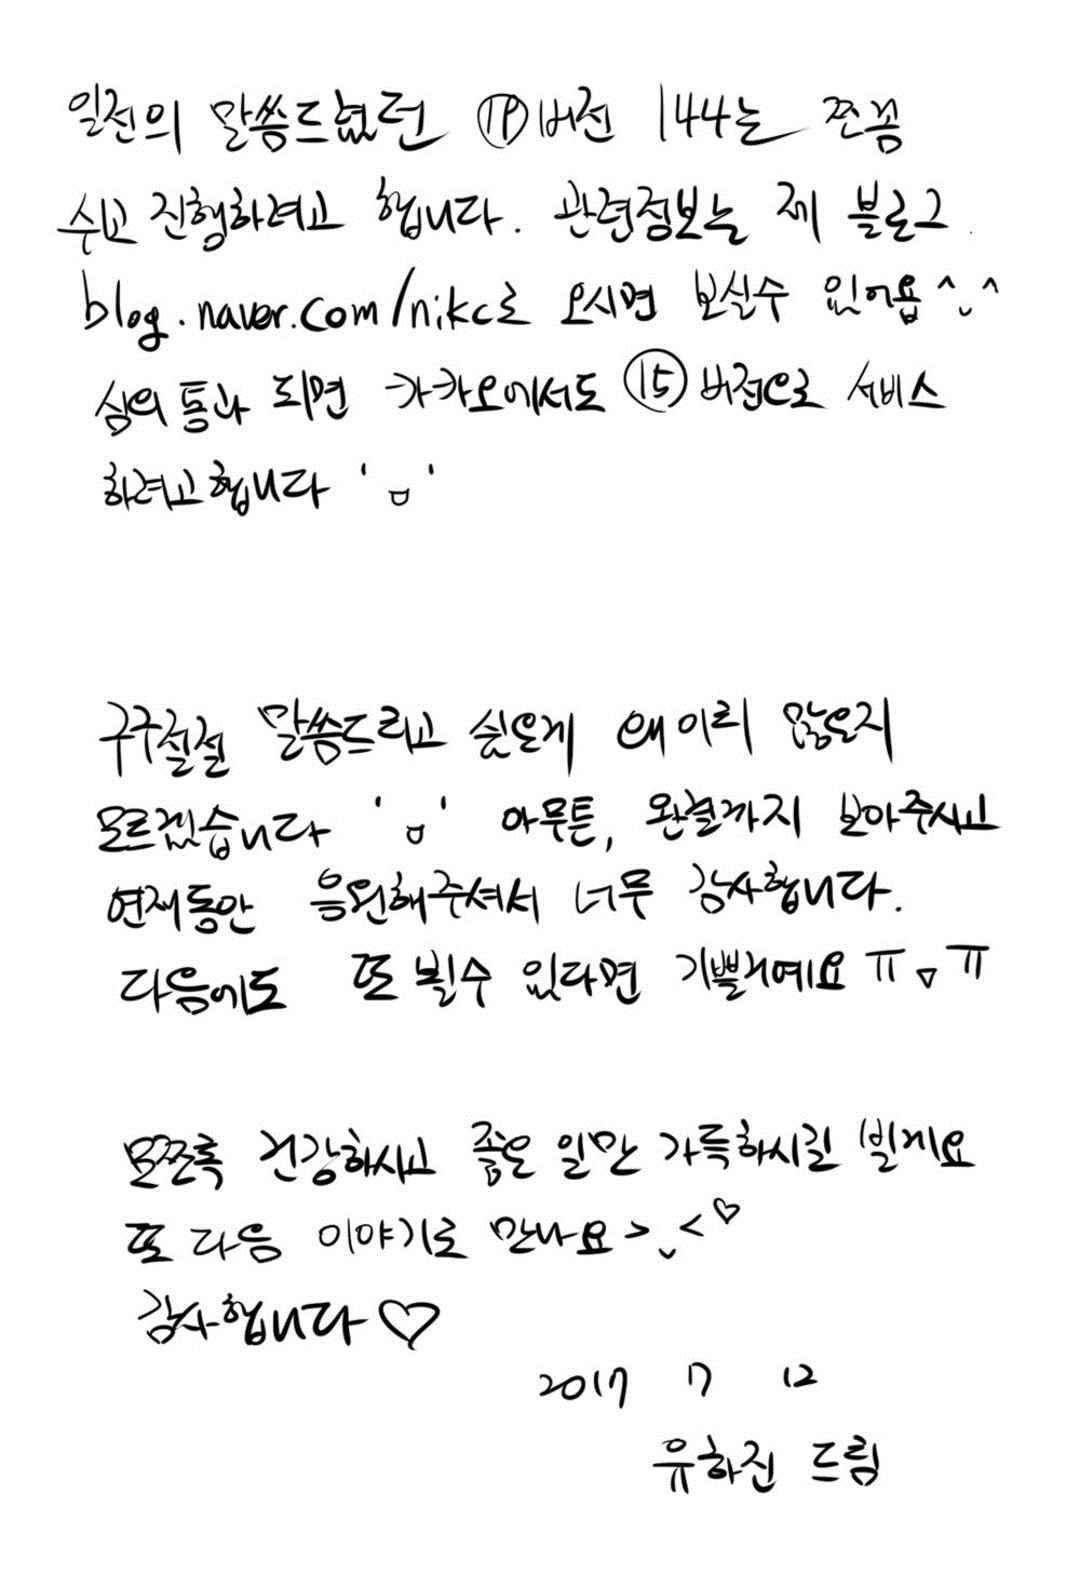 일전의 말씀드렸던 ⑲버전 144는 쯘꼼
쉬고 진행하려고 합니다. 관련정보는 제 블로그
blog.naver.com/nikc로 오시면 보실수 있어욥 ^.^
심의 통과 되면 카카오에서도 ⑮버전으로 서비스
하려고합니다 'ㅁ'
구구절절 말씀드리고 싶은게 왜 이리 많은지
모르겠습니다 'ㅁ' 아무튼, 완결까지 보아주시고
연재동안 응원해주셔서 너무 감사합니다.
다음에도 또 뵐수 있다면 기쁠거예요 ㅠㅁㅠ
모쪼록 건강하시고 좋은 일만 가득하시길 빌게요
또 다음 이야기로 만나요 >.<♡
감사합니다♡
2017 7 12
유하진 드림